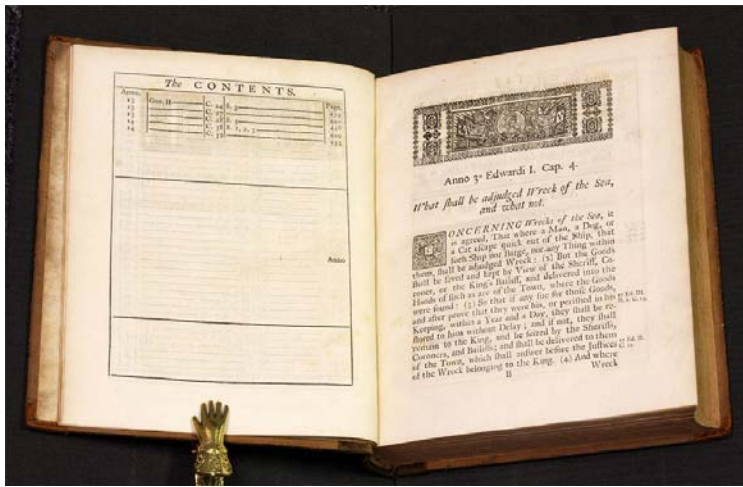 The CONTENTS.
Anno. Page.
13 Geo. II C. 24 S. 3
13 C. 27
13 C. 28 S. 5
14 C. 38 S. 1, 2, 3
14 C. 50
Anno
Anno 3º Edwardi I. Cap. 4.
What ſhall be adjudged Wreck of the Sea,
and what not.
CONCERNING Wrecks of the Sea, it
is agreed, That where a Man, a Dog, or
a Cat eſcape quick out of the Ship, that
ſuch Ship nor Barge, nor any Thing within
them, ſhall be adjudged Wreck: (2) But the Goods
ſhall be ſaved and kept by View of the Sheriff, Co-
roner, or the King's Bailiff, and delivered into the
Hands of ſuch as are of the Town, where the Goods
were found: (3) So that if any ſue for thoſe Goods,
and after prove that they were his, or periſhed in his
Keeping, within a Year and a Day, they ſhall be re-
ſtored to him without Delay; and if not, they ſhall
remain to the King, and be ſeized by the Sheriffs,
Coroners, and Bailiffs; and ſhall be delivered to them
of the Town, which ſhall anſwer before the Juſtices
of the Wreck belonging to the King. (4) And where
B Wreck
27 Ed. III.